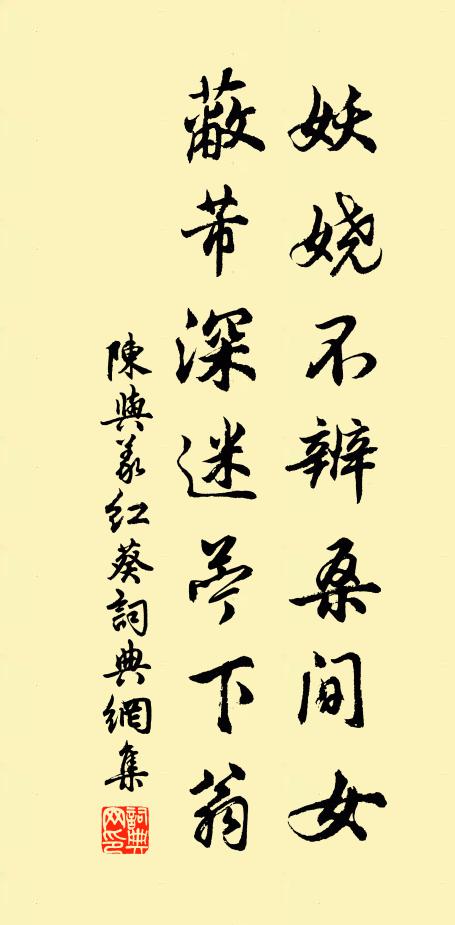 妖娆不辨桑间女
蔽芾深迷苎下翁
陳與義红葵詞典網集
詞典網印